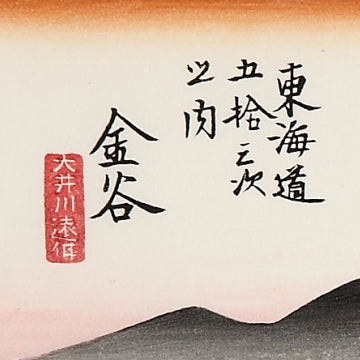 東海道
五拾三次
之内
金谷
大井川遠岸